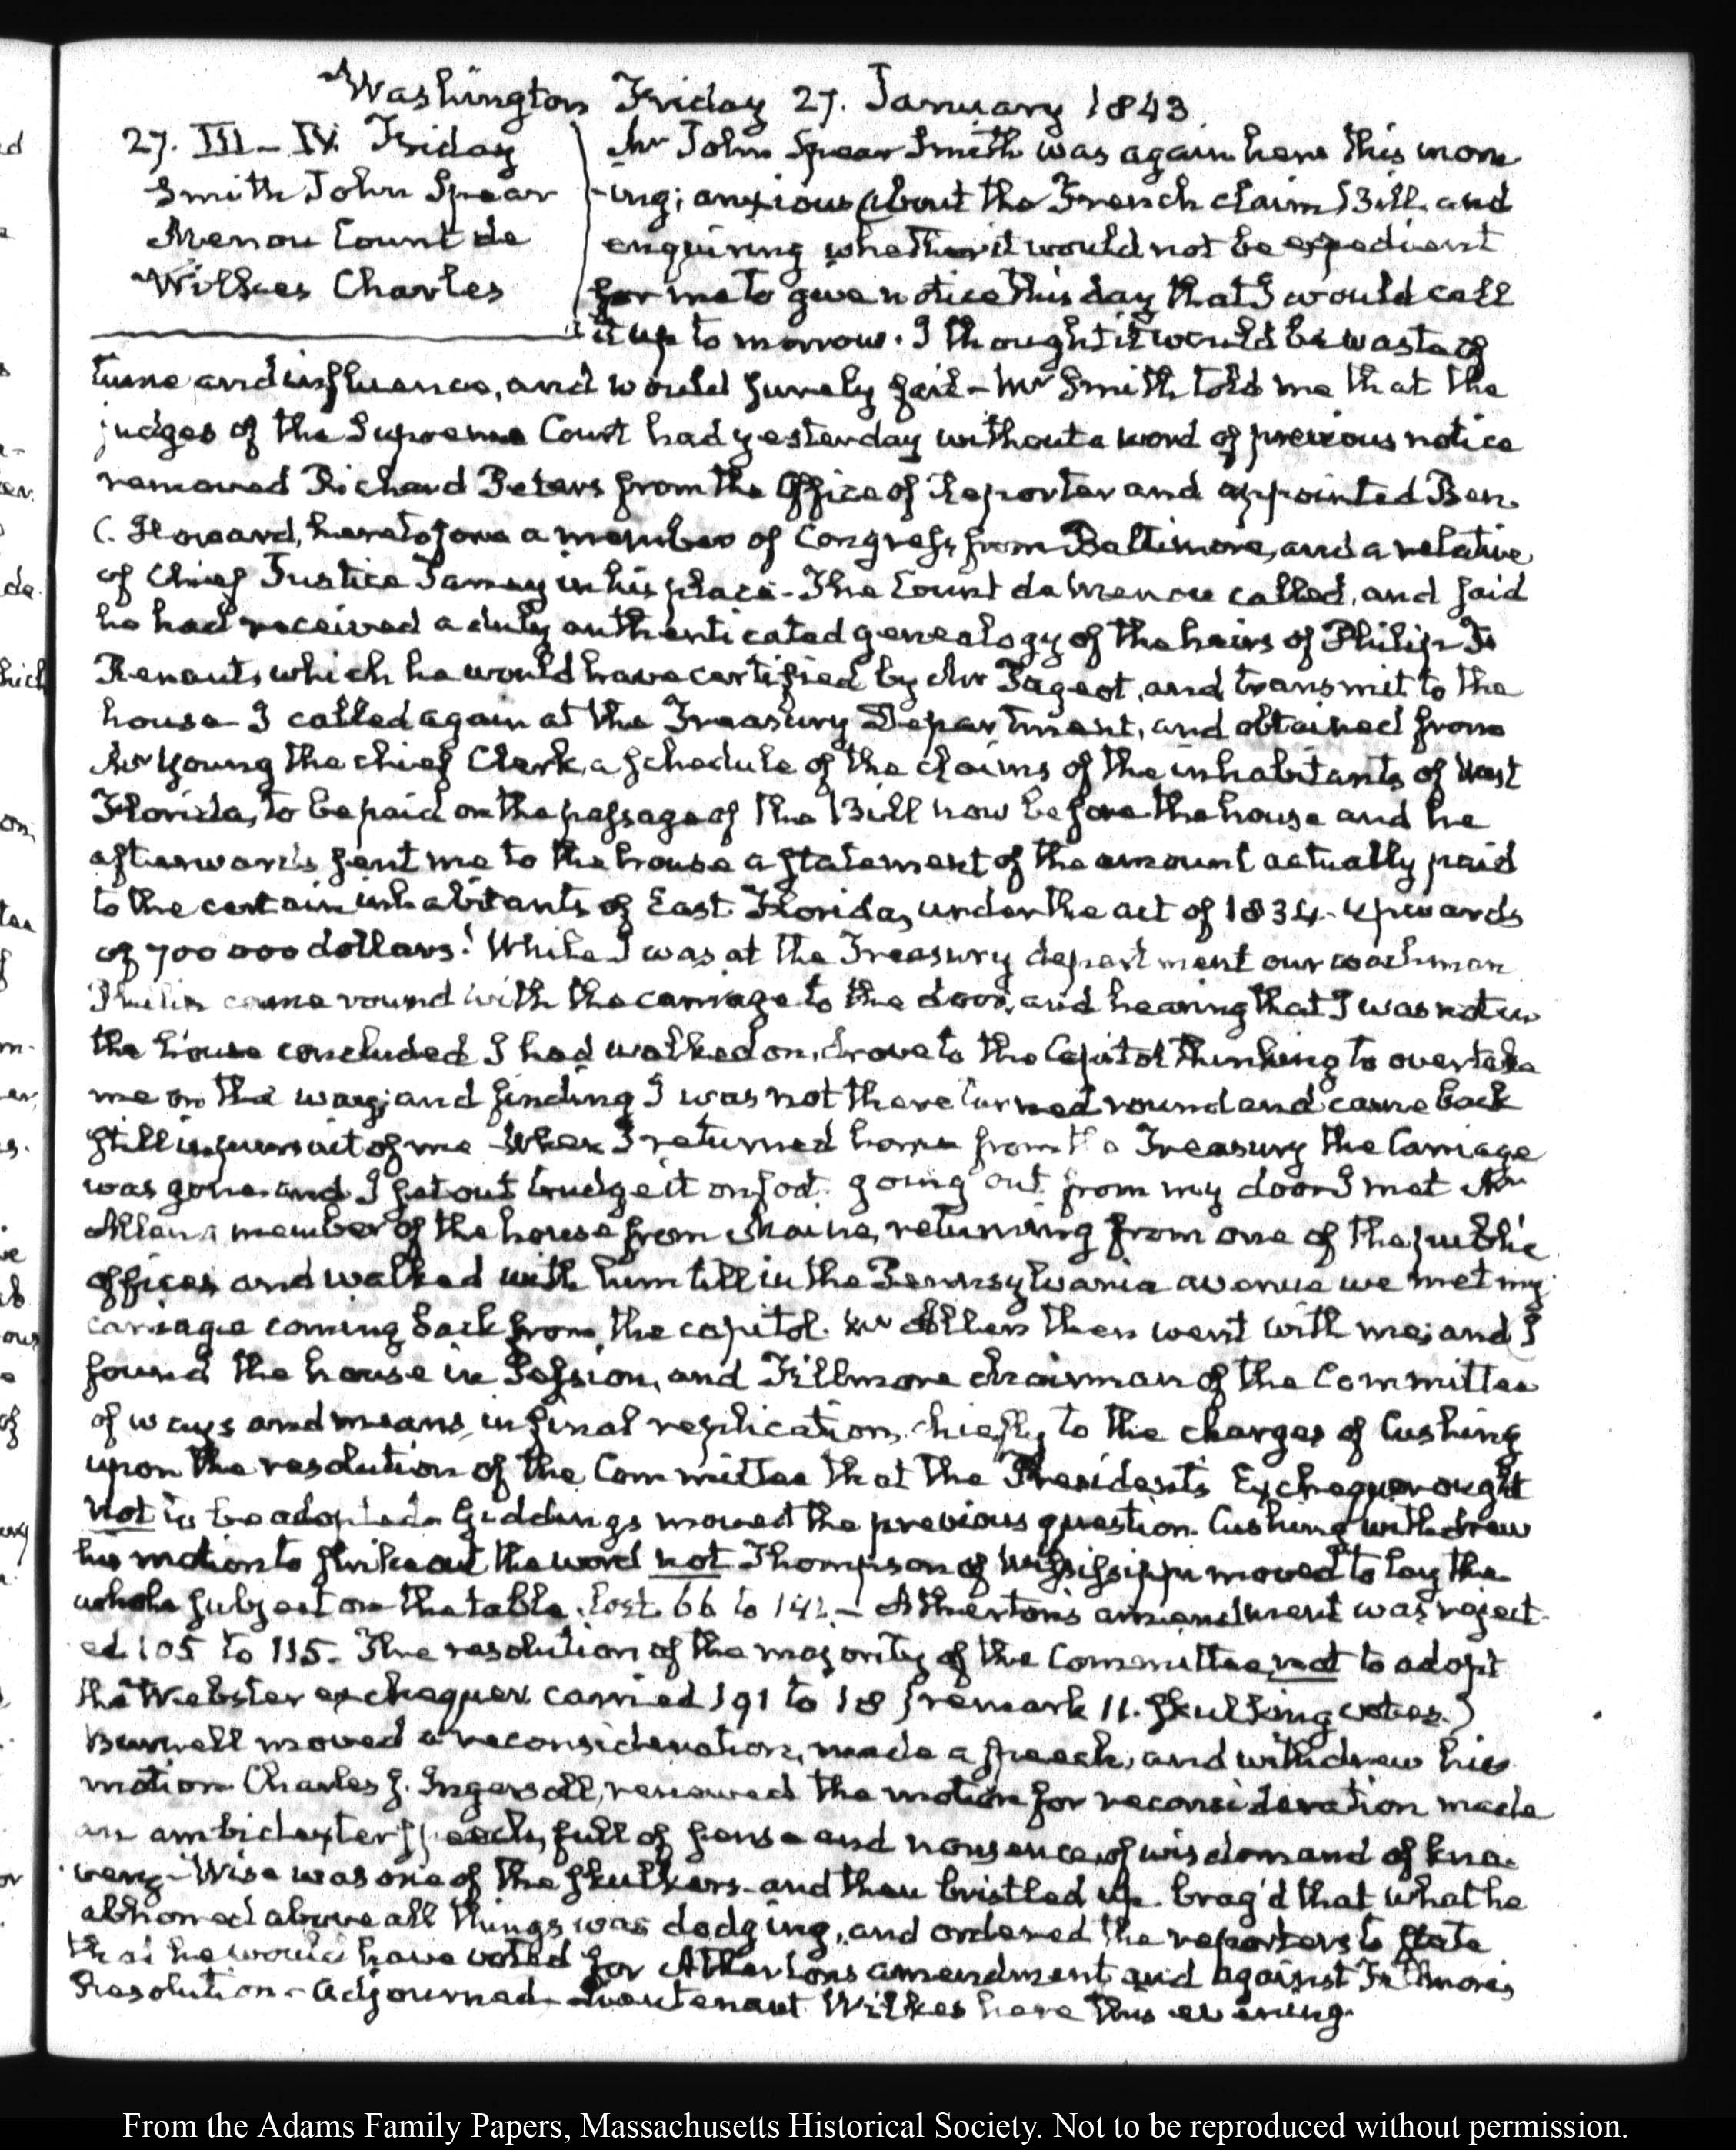 Washington Friday 27. January 1843.
27. III - IV. Friday
Smith John Spear
Menou Count de
Wilkes Charles
Mr John Spear Smith was again here this morn
-ing; anxious about the French claims Bill and
enquiring whether it would not be expedient
for me to give notice this day that I would call
it up to morrow. I thought it would be waste of
time and influence, and would surely fail - Mr Smith told me that the
judges of the Supreme Court had yesterday without a word of previous notice
removed Richard Peters from the Office of Reporter and appointed Ben.
C. Howard, heretofore a member of Congress from Baltimore, and a relative
of Chief Justice Taney in his place - The Count de Menou called, and said
he had received a duly authenticated genealogy of the heirs of Philip Fs
Renaut, which he would have certified by Mr Pageot, and transmit to the
house - I called again at the Treasury Department, and obtained from
Mr Young the chief Clerk, a schedule of the claims of the inhabitants of West
Florida, to be paid on the passage of the Bill now before the house and he
afterwards sent me to the house a statement of the amount actually paid
to the certain inhabitants of East Florida, under the act of 1834 - upwards
of 700 000 dollars! While I was at the Treasury department our coachman
came round with the carriage to the door, and hearing that I was not in
the house concluded I had walked on, drove to the Capitol thinking to overtake
me on the way; and finding I was not there turned round and came back
still in pursuit of me - When I returned home from the Treasury the Carriage
was gone and I set out to trudge it on foot. going out from my door I met Mr
Allen a member of the house from Maine, returning from one of the public
offices and walked with him till in the Pennsylvania avenue we met my
carriage coming back from the capitol. Mr Allen then went with me; and I
found the house in Session, and Fillmore chairman of the Committee
of ways and means, in final replication, chiefly to the charges of Cushing
upon the resolution of the Committee that the Presidents Exchequer ought
not to be adopted - Giddings moved the previous question. Cushing withdrew
his motion to strike out the word not Thompson of Mississippi moved to lay the
whole subject on the table. lost. 66 to 142 - Atherton's amendment was reject-
ed 105 to 115. The resolution of the majority of the Committee, not to adopt
the Webster exchequer carried 191 to 18 {remark 11. skulking votes.}
moved a reconsideration, made a speech, and withdrew his
motion Charles J. Ingersoll, renewed the motion for reconsideration made
an ambidexter speech, full of sense and nonsence, of wisdom and of kna-
very - Wise was one of the skulkers - and then bristled up. brag'd that what he
abhorred above all things was dodging, and ordered the reporters to state
that he would have voted for Athertons amendment and against Fillmore's
Resolution - Adjourned - Lieutenant Wilkes here this evening.
From the Adams Family Papers, Massachusetts Historical Society. Not to be reproduced without permission.